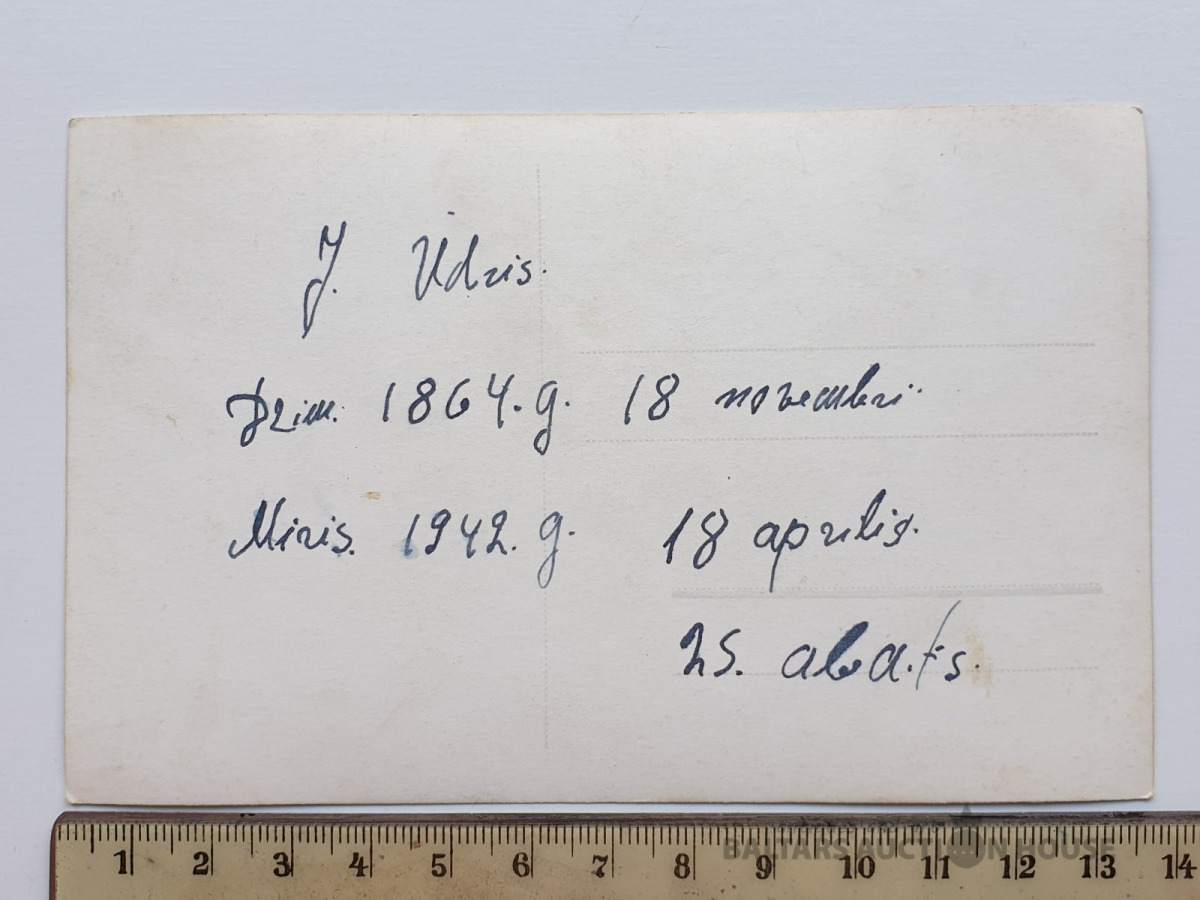 J. Udris.
Dzim. 1864. g. 18 novembri.
Miris. 1942. g. 18 aprilis.
25.
BALTARS AUCTION HOUSE
1 2 3 4 5 6 7 8 9 10 11 12 13 14